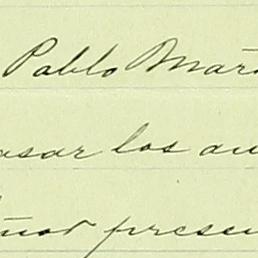 Pablo Mar
asar los au
presen